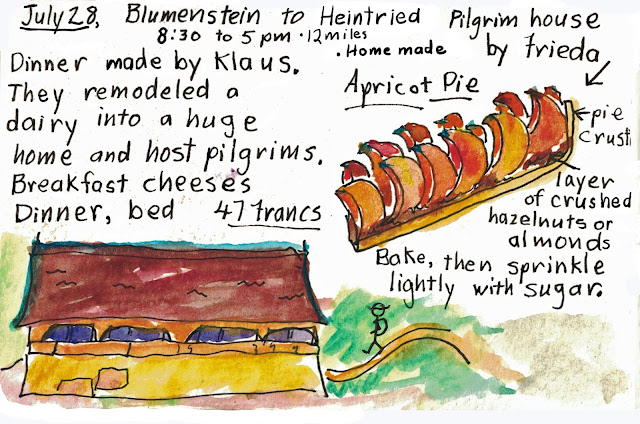 July 28, Blumenstein to Heintried
8:30 to 5 pm • 12 miles
Dinner made by Klaus.
They remodeled a
dairy into a huge
home and host pilgrims.
Breakfast cheeses
Dinner, bed 47 francs
Pilgrim house
by Frieda
• Home made
Apricot Pie
pie
crust
layer
of crushed
hazelnuts or
almonds
Bake, then sprinkle
lightly with sugar.